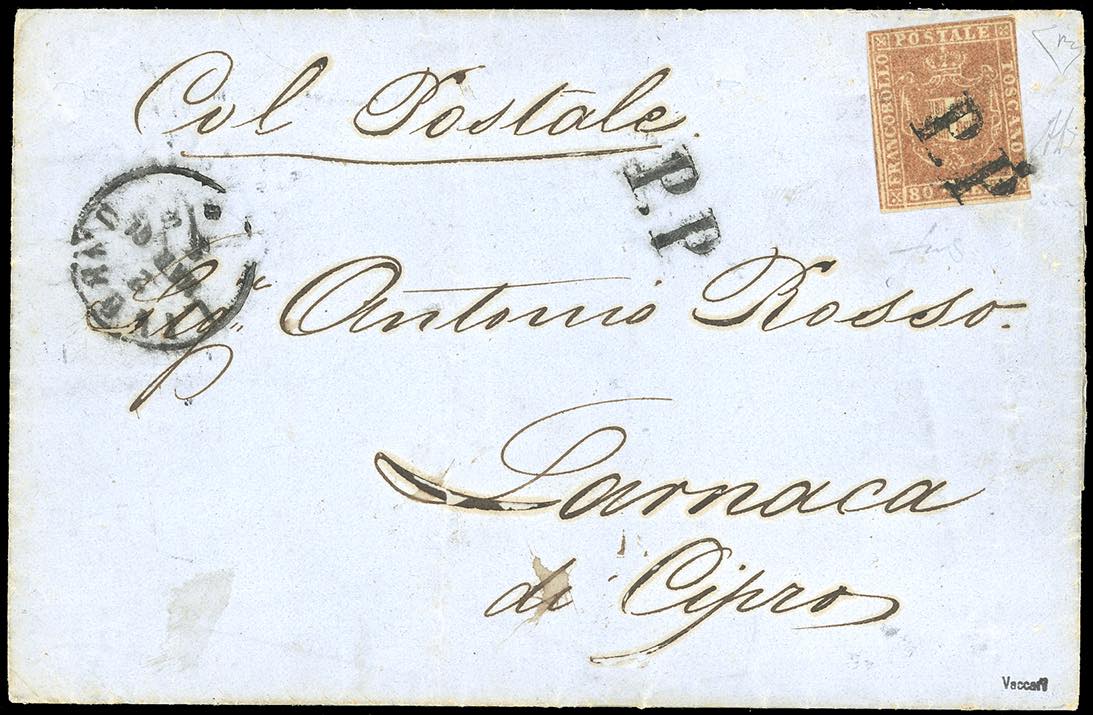 Col Postale.
POSTALE
FRANCOBOLLO
TOSCANO
80
P.P
P.P
LIVORNO
Sig.r Antonio Rosso.
Larnaca
di Cipro
Vaccari